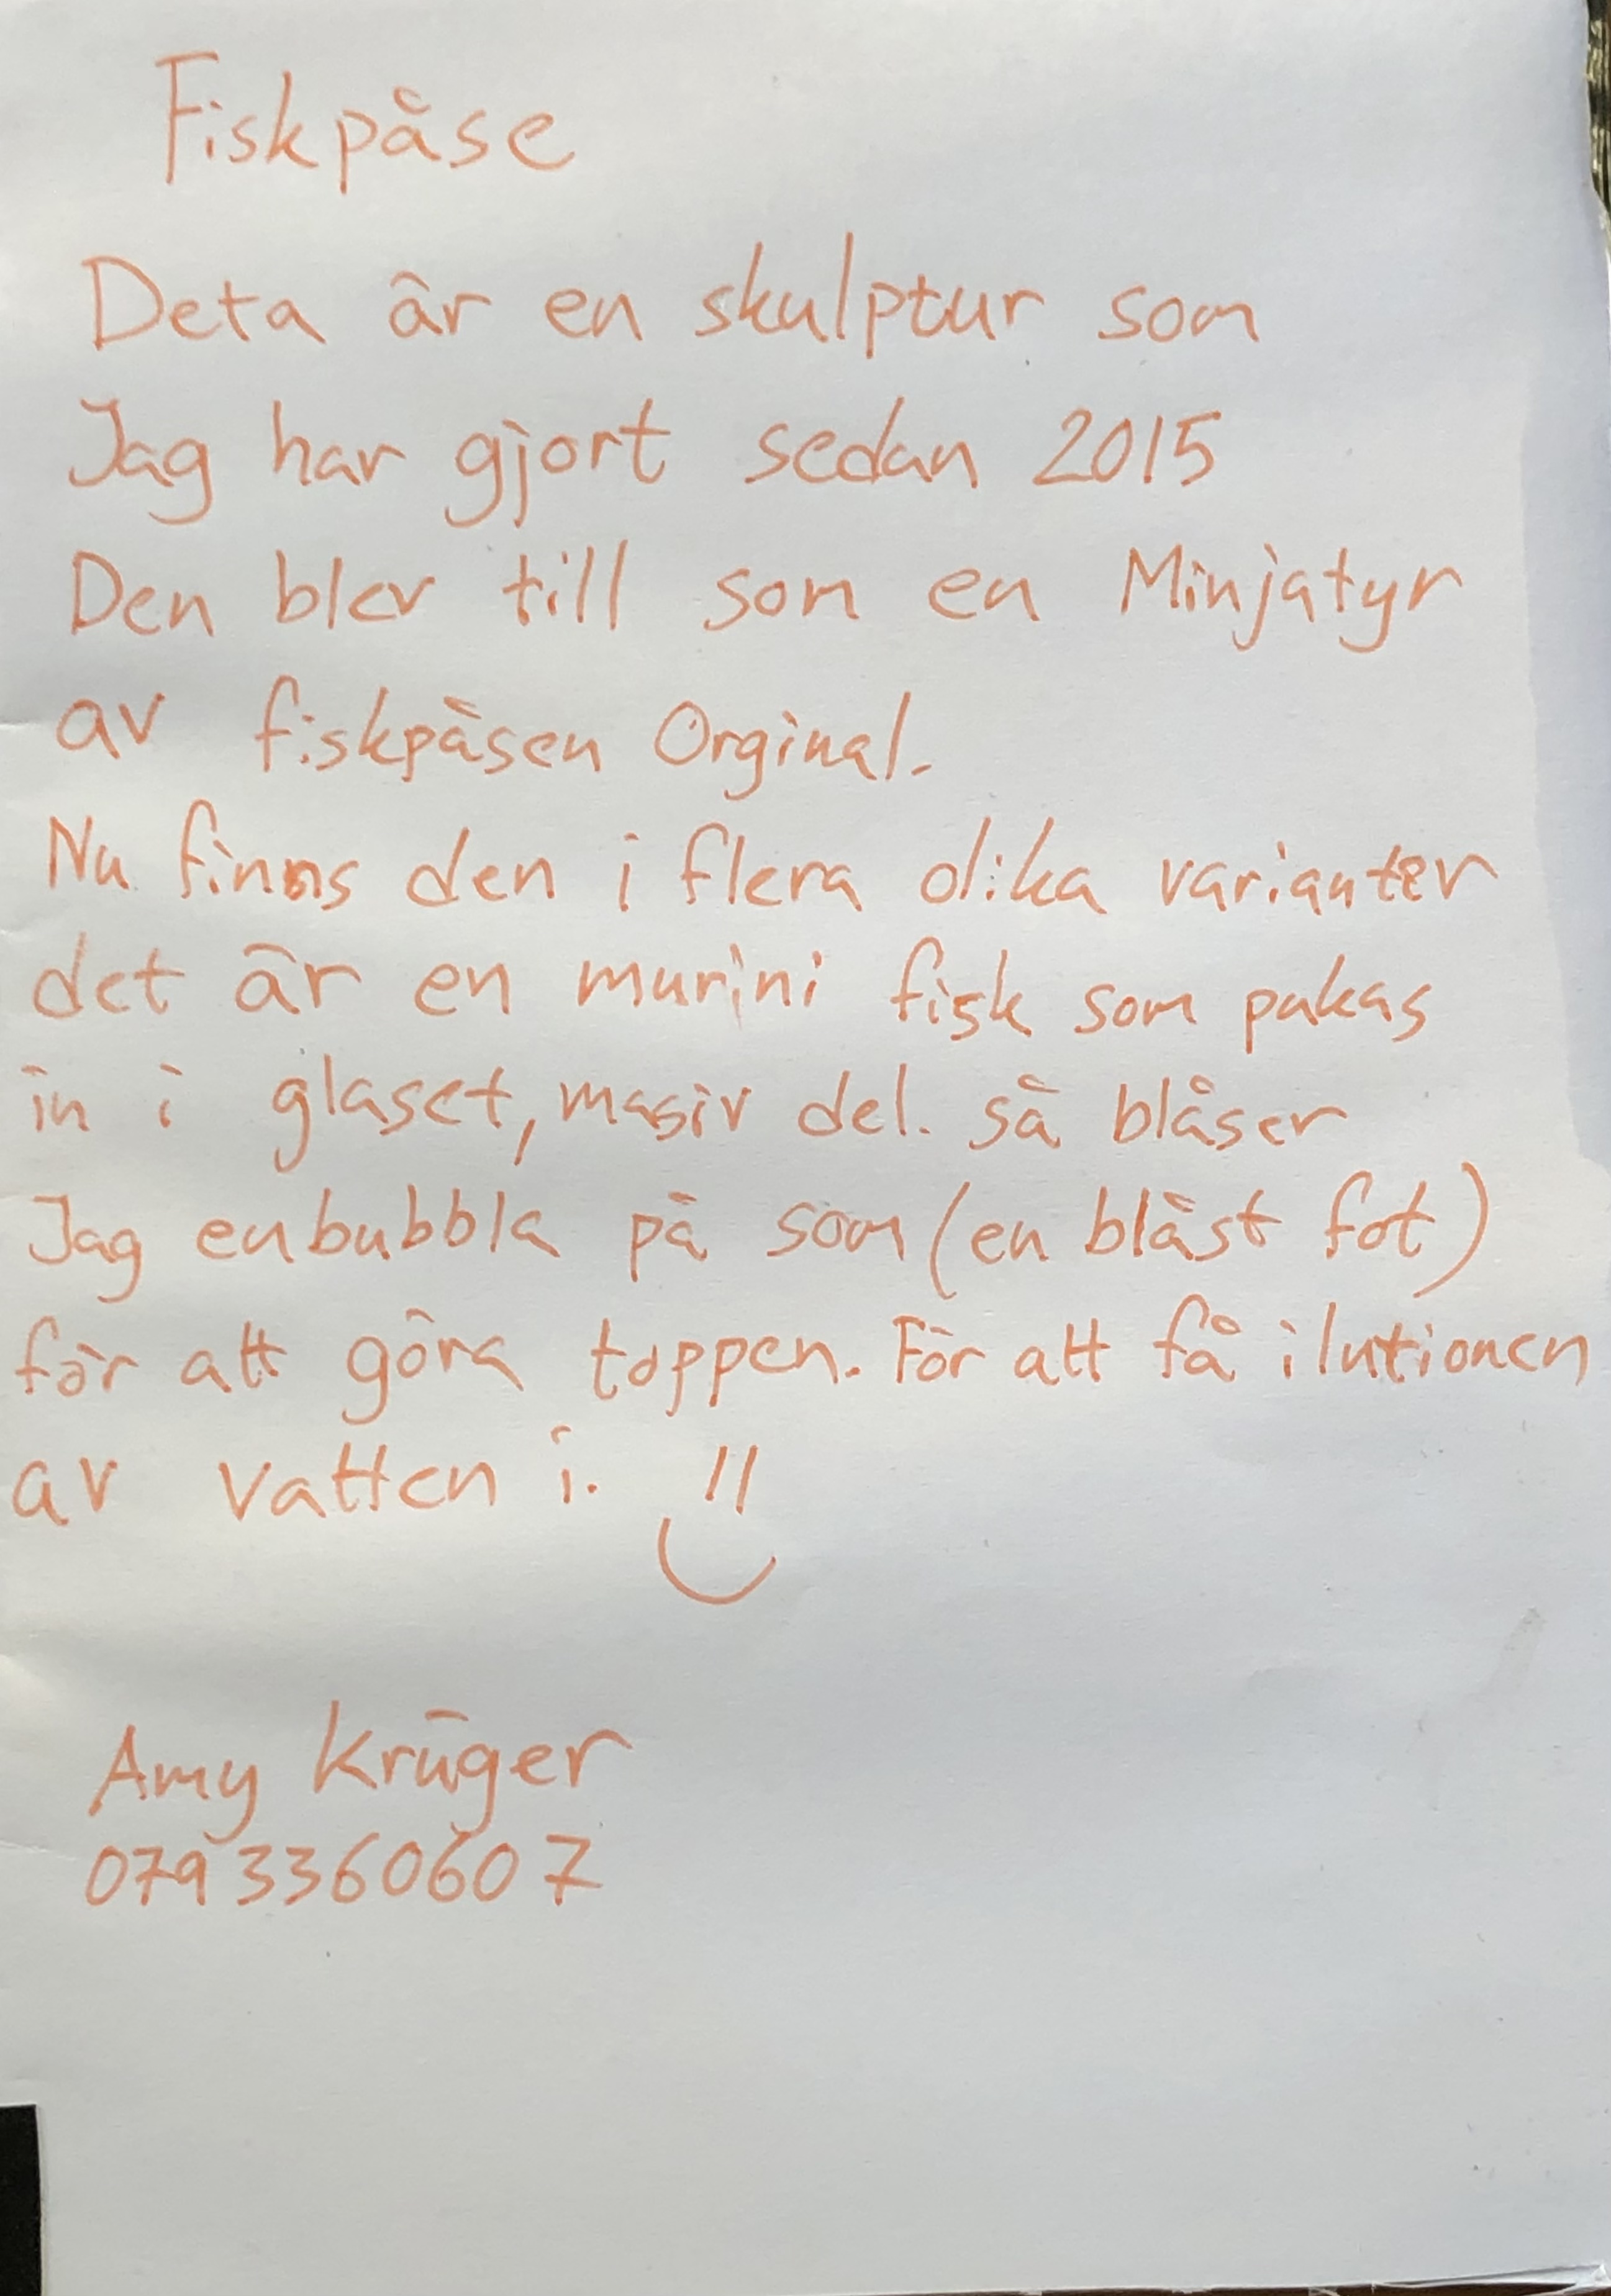 Fiskpåse
Deta är en skulptur som
Jag har gjort sedan 2015
Den blev till som en Minjatyr
av fiskpåsen Orginal.
Nu finns den i flera olika varianter
det är en murini fisk som pakas
in i glaset, masiv del. så blåser
Jag en bubbla på som (en blåst fot)
för att göra toppen. För att få ilutionen
av vatten i.
Amy Krüger
0793360607